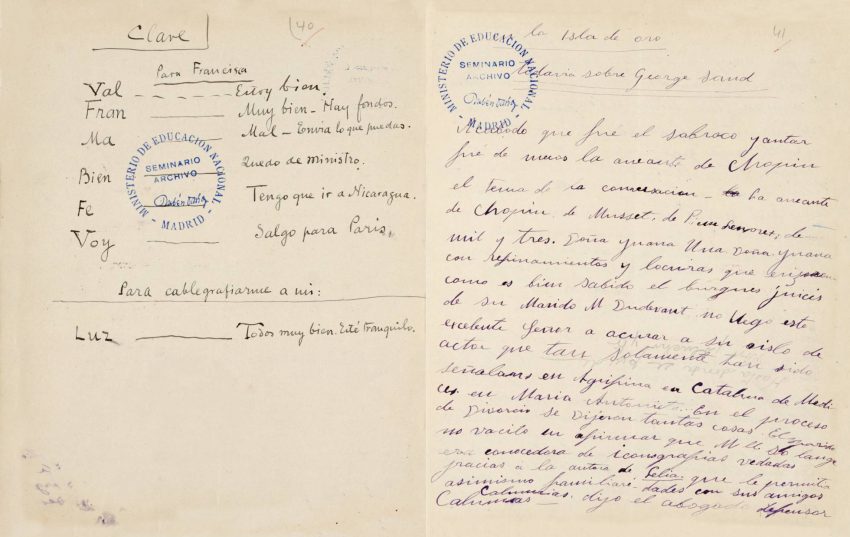 40
Clave
Para Francisca
Val — Estoy bien.
Fran — Muy bien - Hay fondos.
Ma — Mal - Envia lo que puedas.
Bien — Quedo de ministro.
Fe — Tengo que ir a Nicaragua.
Voy — Salgo para Paris.
Para cablegrafiarme a mi:
Luz — Todos muy bien. Esté tranquilo.
MINISTERIO DE EDUCACION NACIONAL
SEMINARIO
ARCHIVO
Rubén Darío
- MADRID -
41
la Isla de oro
todavia sobre George Sand
MINISTERIO DE EDUCACION NACIONAL
SEMINARIO
ARCHIVO
Rubén Darío
- MADRID -
que fué el sabroso yantar
fué de nuevo la amante de Chopin
el tema de la conversacion - la amante
de Chopin, de Musset, de de
mil y tres. Doña Juana Una Doña Juana
con refinamientos y locuras que
como es bien sabido el burgues juicio
de su Marido M Dudevant, no llego este
excelente señor a acusar a su de
actor que tan solamente han sido
en Agripina en Catalina de Medi
cis en Maria Antonieta En el proceso
de Divorcio se dijeron tantas cosas El marido
no vacilo en afirmar que M
era conocedora de iconografias vedadas
gracias a la autora de Lelia que le permitia
asimismo familiaridades con sus amigos
Calumnias
Calumnias — dijo el abogado defensor